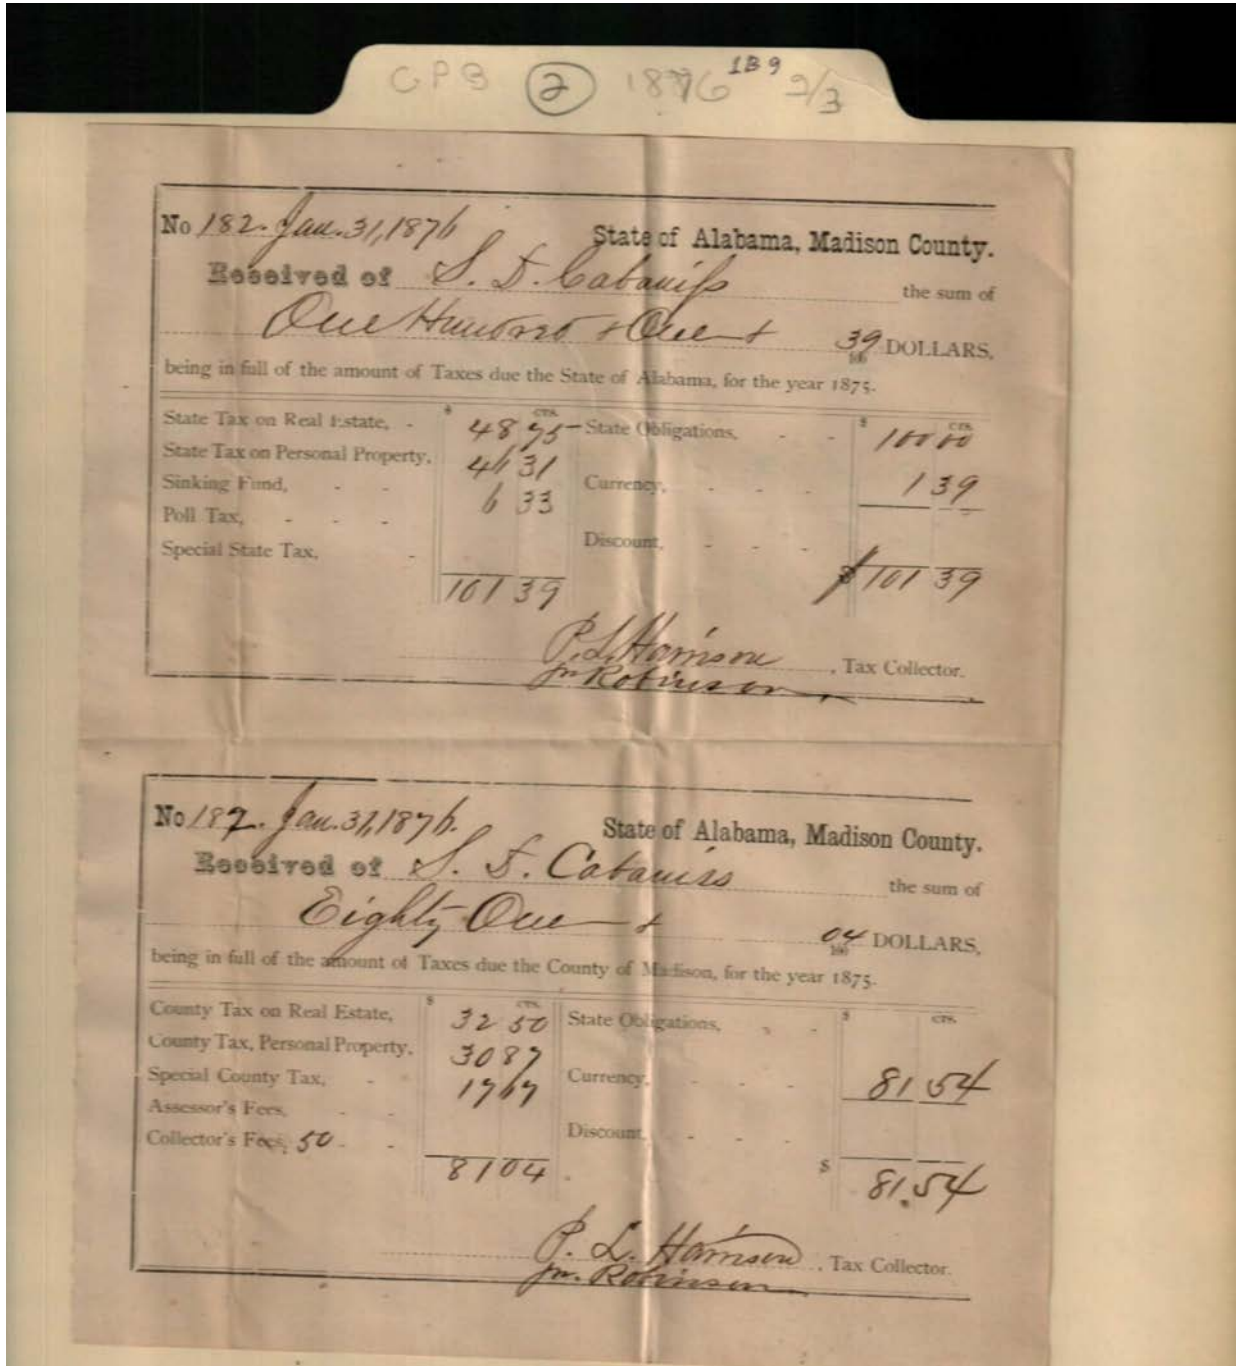 CPB 2 1876 1B9 2/3
No 182. Jan. 31, 1876 State of Alabama, Madison County.
Received of S. D. Cabaniss the sum of
One Hundred & One & 39/100 DOLLARS,
being in full of the amount of Taxes due the State of Alabama, for the year 1875.
$ CTS. $ CTS.
State Tax on Real Estate, - 48 75 State Obligations, - - 100 00
State Tax on Personal Property, 46 31
Sinking Fund, - - 6 33 Currency, - - - 1 39
Poll Tax, - - -
Special State Tax, - Discount, - - -
101 39 $ 101 39
P. L. Harrison , Tax Collector.
Robinson
No 182. Jan. 31, 1876. State of Alabama, Madison County.
Received of S. D. Cabaniss the sum of
Eighty One & 04/100 DOLLARS,
being in full of the amount of Taxes due the County of Madison, for the year 1875.
$ CTS. $ CTS.
County Tax on Real Estate, 32 50 State Obligations, - -
County Tax, Personal Property, 30 87
Special County Tax, - 17 67 Currency, - - - 81 54
Assessor's Fees, - -
Collector's Fees, 50 - - Discount, - - -
81 04 $ 81.54
P. L. Harrison , Tax Collector.
Robinson